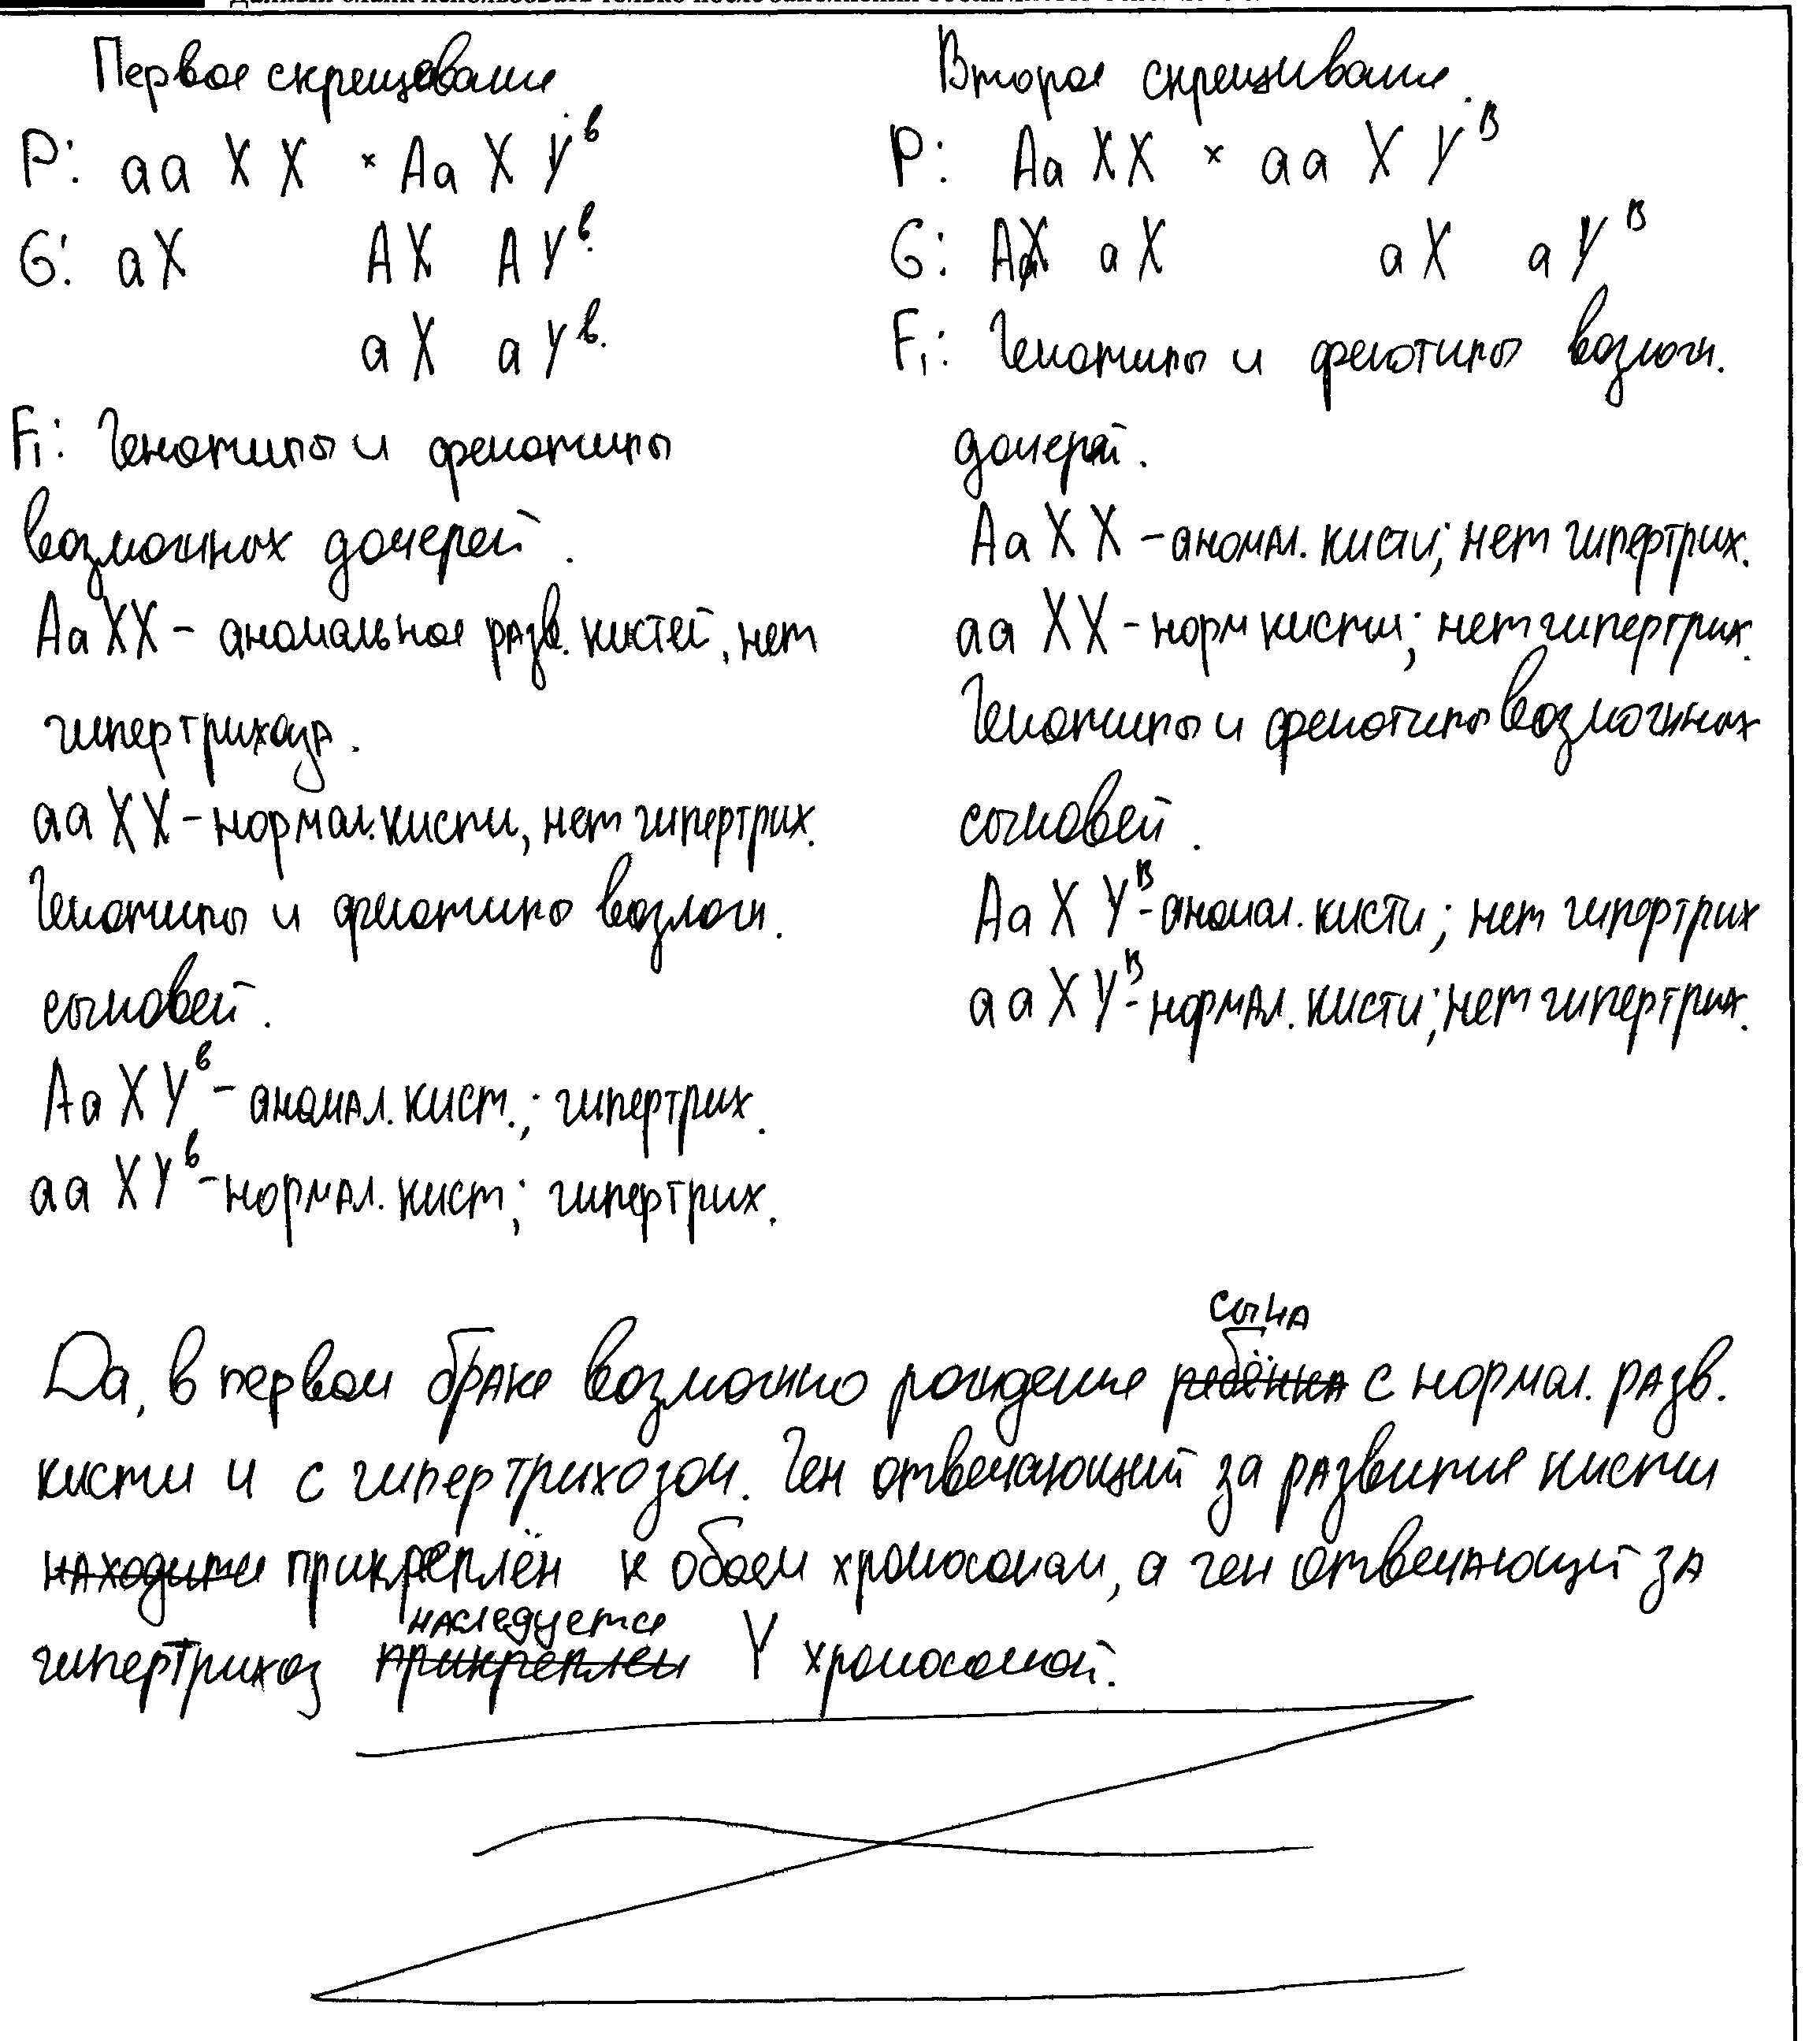 Первое скрещивание
P: aa X X × Aa X Y^b
G: aX AX AY^b
aX aY^b
F₁: Генотипы и фенотипы
возможных дочерей.
Aa XX – аномальное разв. кистей, нет
гипертрихоза.
aa XX – нормал. кисти, нет гипертрих.
Генотипы и фенотипы возможн.
сыновей.
Aa XY^b – аномал. кист.; гипертрих.
aa XY^b – нормал. кист; гипертрих.
Второе скрещивание.
P: Aa XX × aa X Y^B
G: AX aX aX aY^B
F₁: Генотипы и фенотипы возможн.
дочерей.
Aa X X – аномал. кисти; нет гипертрих.
aa XX – норм кисти; нет гипертрих.
Генотипы и фенотипы возможных
сыновей.
Aa X Y^B – аномал. кисти; нет гипертрих
aa X Y^B – нормал. кисти; нет гипертрих.
сына
Да, в первом браке возможно рождение ребёнка с нормал. разв.
кисти и с гипертрихозом. Ген отвечающий за развитие кисти
находится прикреплён к обоем хромосомам, а ген отвечающий за
наследуется
гипертрихоз прикреплен Y хромосомой.